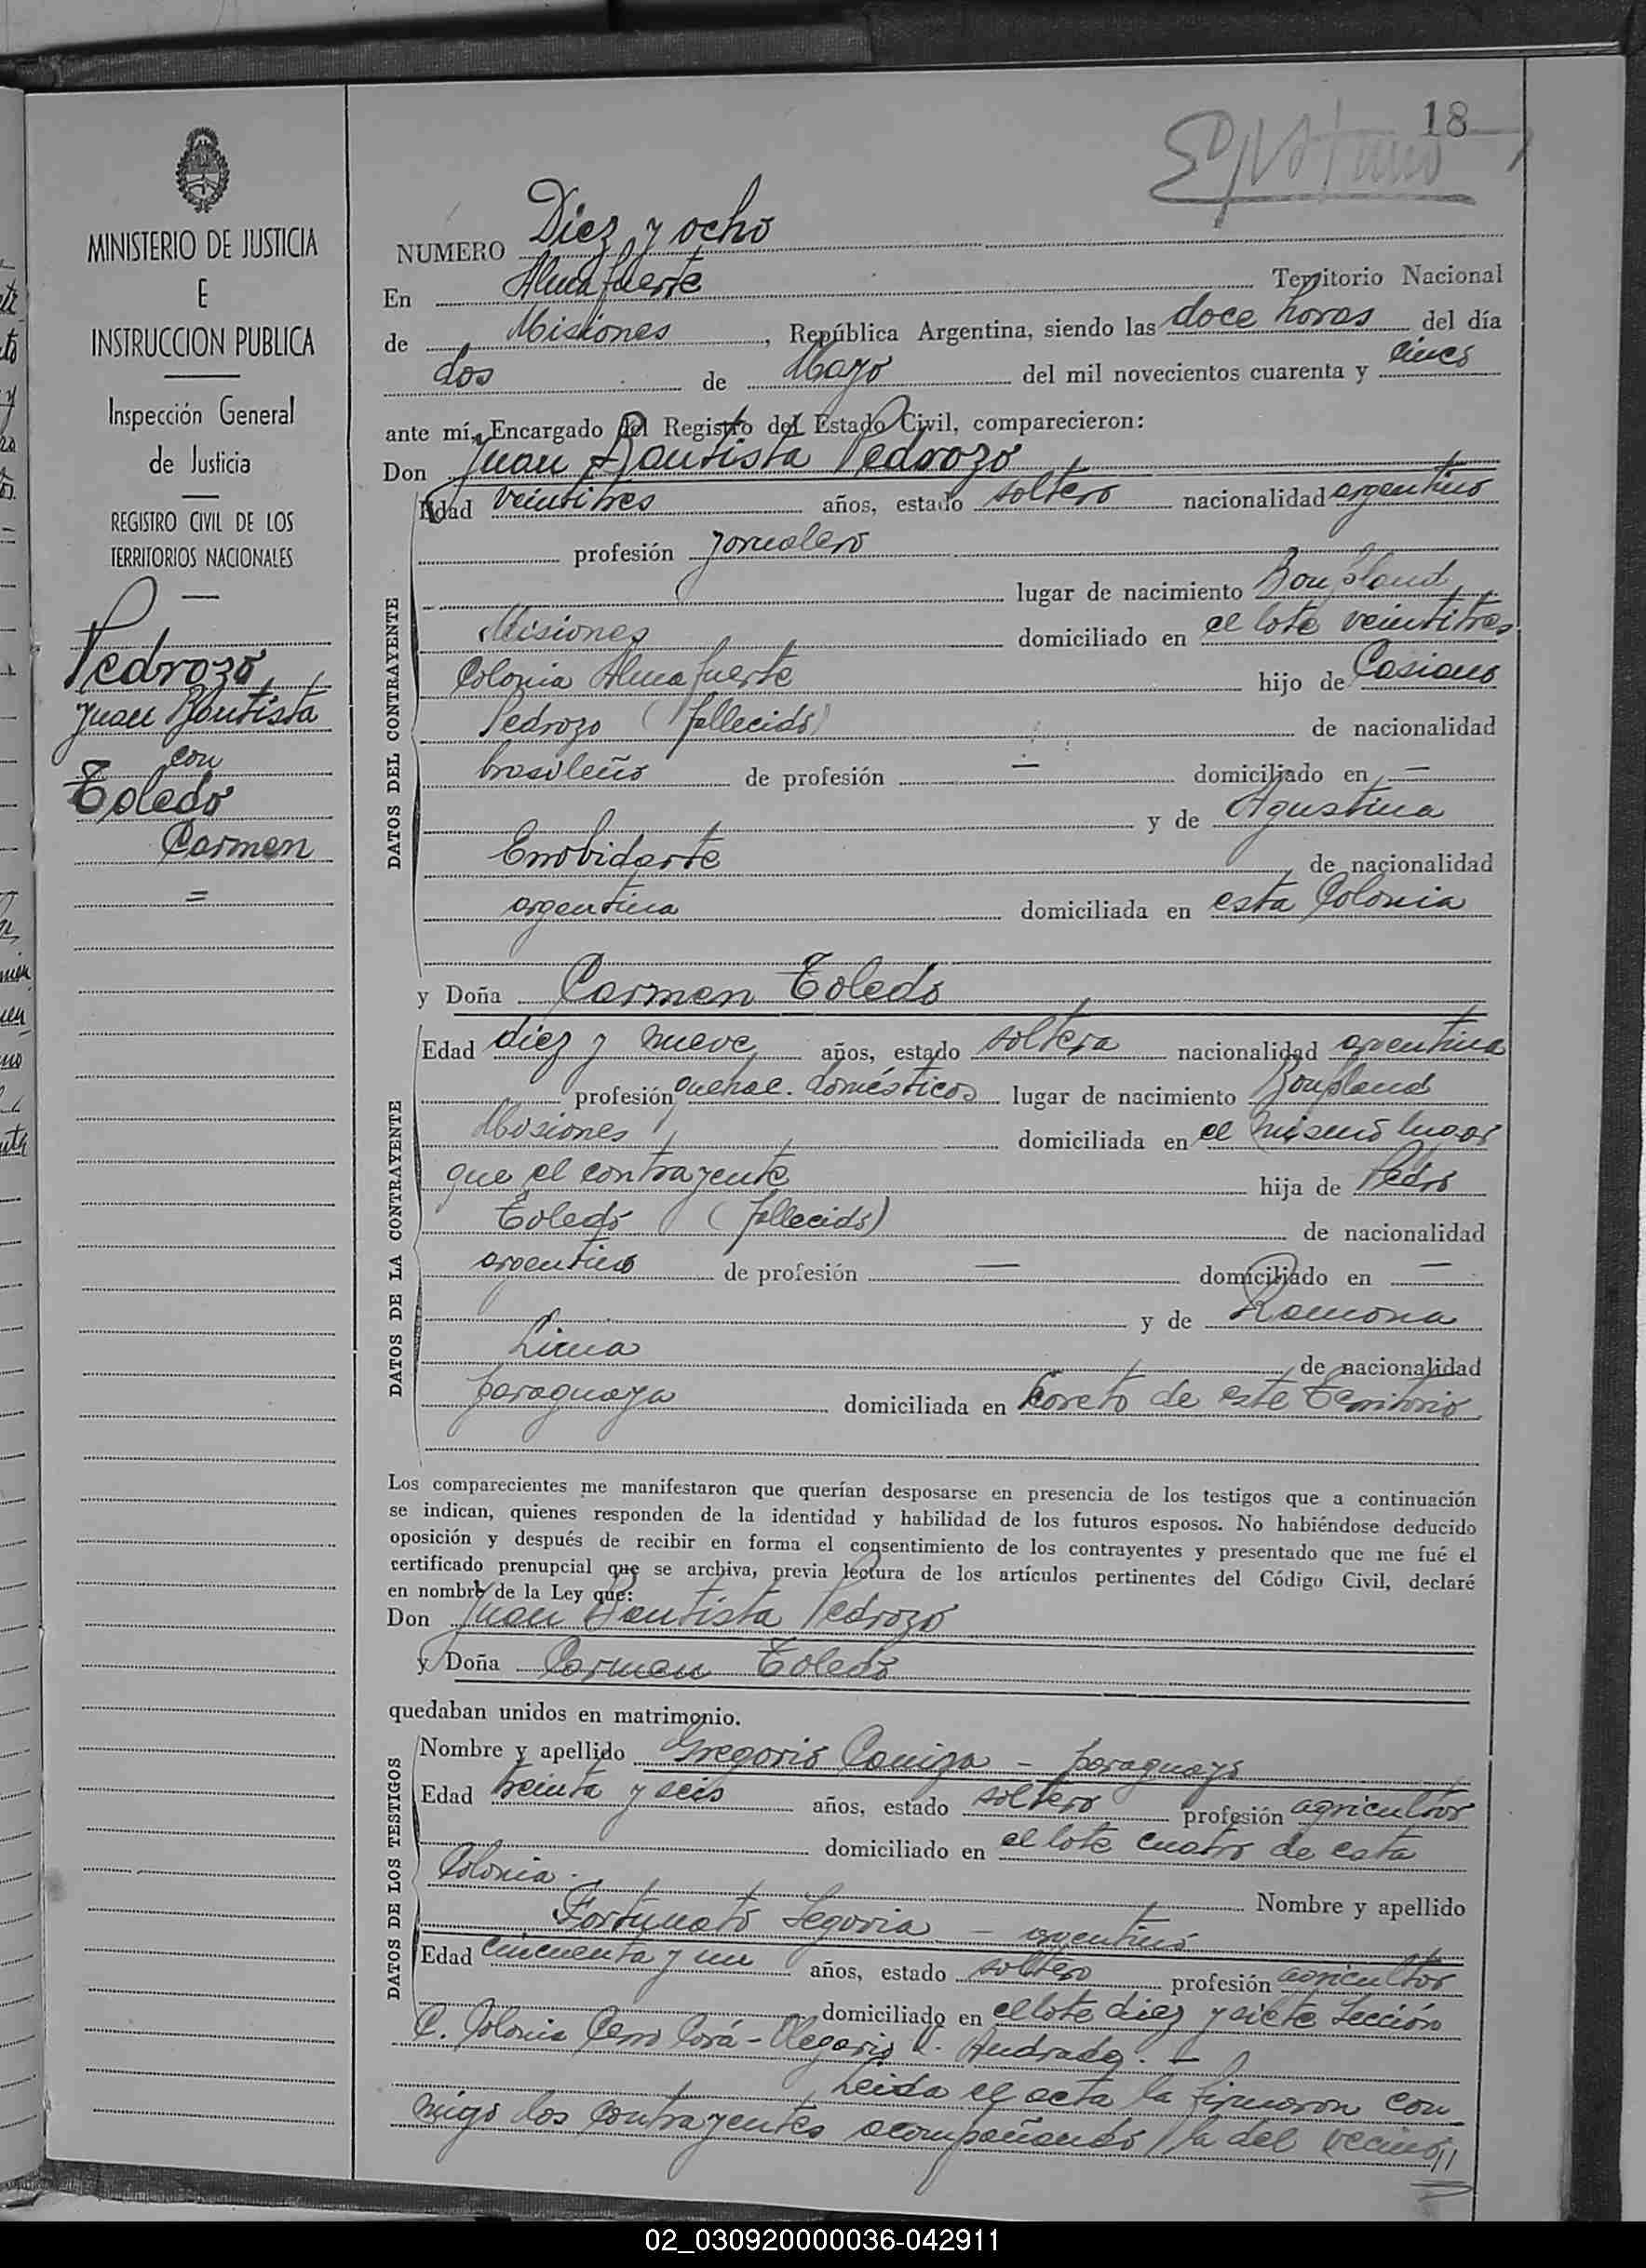 18
MINISTERIO DE JUSTICIA
E
INSTRUCCION PUBLICA
Inspección General
de Justicia
REGISTRO CIVIL DE LOS
TERRITORIOS NACIONALES
Pedrozo
Juan Bautista
con
Toledo
Carmen
=
NUMERO Diez y ocho
En Almafuerte Territorio Nacional
de Misiones, República Argentina, siendo las doce horas del día
dos de Mayo del mil novecientos cuarenta y cinco
ante mí, Encargado del Registro del Estado Civil, comparecieron:
Don Juan Bautista Pedrozo
DATOS DEL CONTRAYENTE
Edad veintitres años, estado soltero nacionalidad argentino
profesión jornalero
lugar de nacimiento Bonpland
Misiones domiciliado en el lote veintitres
Colonia Almafuerte hijo de Casiano
Pedrozo (fallecido) de nacionalidad
brasileño de profesión — domiciliado en —
y de Agustina
de nacionalidad
argentina domiciliada en esta Colonia
y Doña Carmen Toledo
DATOS DE LA CONTRAYENTE
Edad diez y nueve años, estado soltera nacionalidad argentina
profesión quehac. domésticos lugar de nacimiento Bonpland
Misiones domiciliada en el mismo lugar
que el contrayente hija de Pedro
Toledo (fallecido) de nacionalidad
argentino de profesión — domiciliado en —
y de Ramona
Lima de nacionalidad
paraguaya domiciliada en Loreto de este Territorio
Los comparecientes me manifestaron que querían desposarse en presencia de los testigos que a continuación
se indican, quienes responden de la identidad y habilidad de los futuros esposos. No habiéndose deducido
oposición y después de recibir en forma el consentimiento de los contrayentes y presentado que me fué el
certificado prenupcial que se archiva, previa lectura de los artículos pertinentes del Código Civil, declaré
en nombre de la Ley que:
Don Juan Bautista Pedrozo
y Doña Carmen Toledo
quedaban unidos en matrimonio.
DATOS DE LOS TESTIGOS
Nombre y apellido Gregorio Caniza – paraguayo
Edad treinta y seis años, estado soltero profesión agricultor
domiciliado en el lote cuatro de esta
Colonia. Nombre y apellido
Fortunato Segovia – argentino
Edad cincuenta y un años, estado soltero profesión agricultor
domiciliado en el lote diez y siete Sección
C. Colonia Cerro Corá – Olegario V. Andrade. –
Leida el acta la firmaron con
migo los contrayentes acompañando la del vecino //
02_030920000036-042911